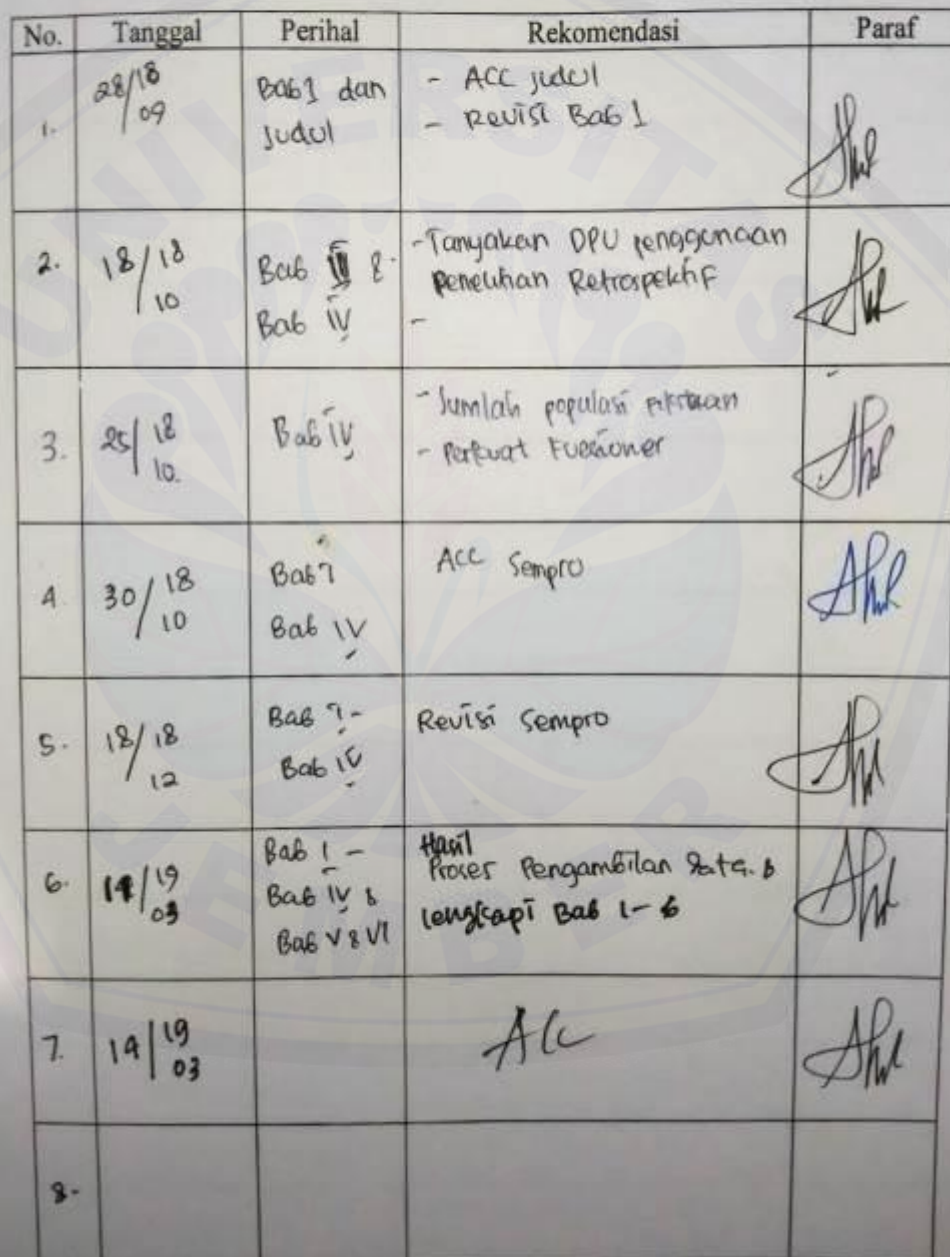 No. Tanggal Perihal Rekomendasi Paraf
1. 28/18 09 Bab 1 dan Judul - ACC Judul
- Revisi Bab 1
2. 18/18 10 Bab III & Bab IV - Tanyakan DPU penggunaan
Penelitian Retrospektif
-
3. 25/18 10. Bab IV - Jumlah populasi
- Perkuat Kuesioner
4. 30/18 10 Bab 1 Bab IV ACC Sempro
5. 18/18 12 Bab 1 - Bab IV Revisi Sempro
6. 14/19 03 Bab 1 - Bab IV & Bab V & VI Hasil
Proses Pengambilan Data. &
lengkapi Bab 1-6
7. 14/19 03 Acc
8.
UNIVERSITAS JEMBER